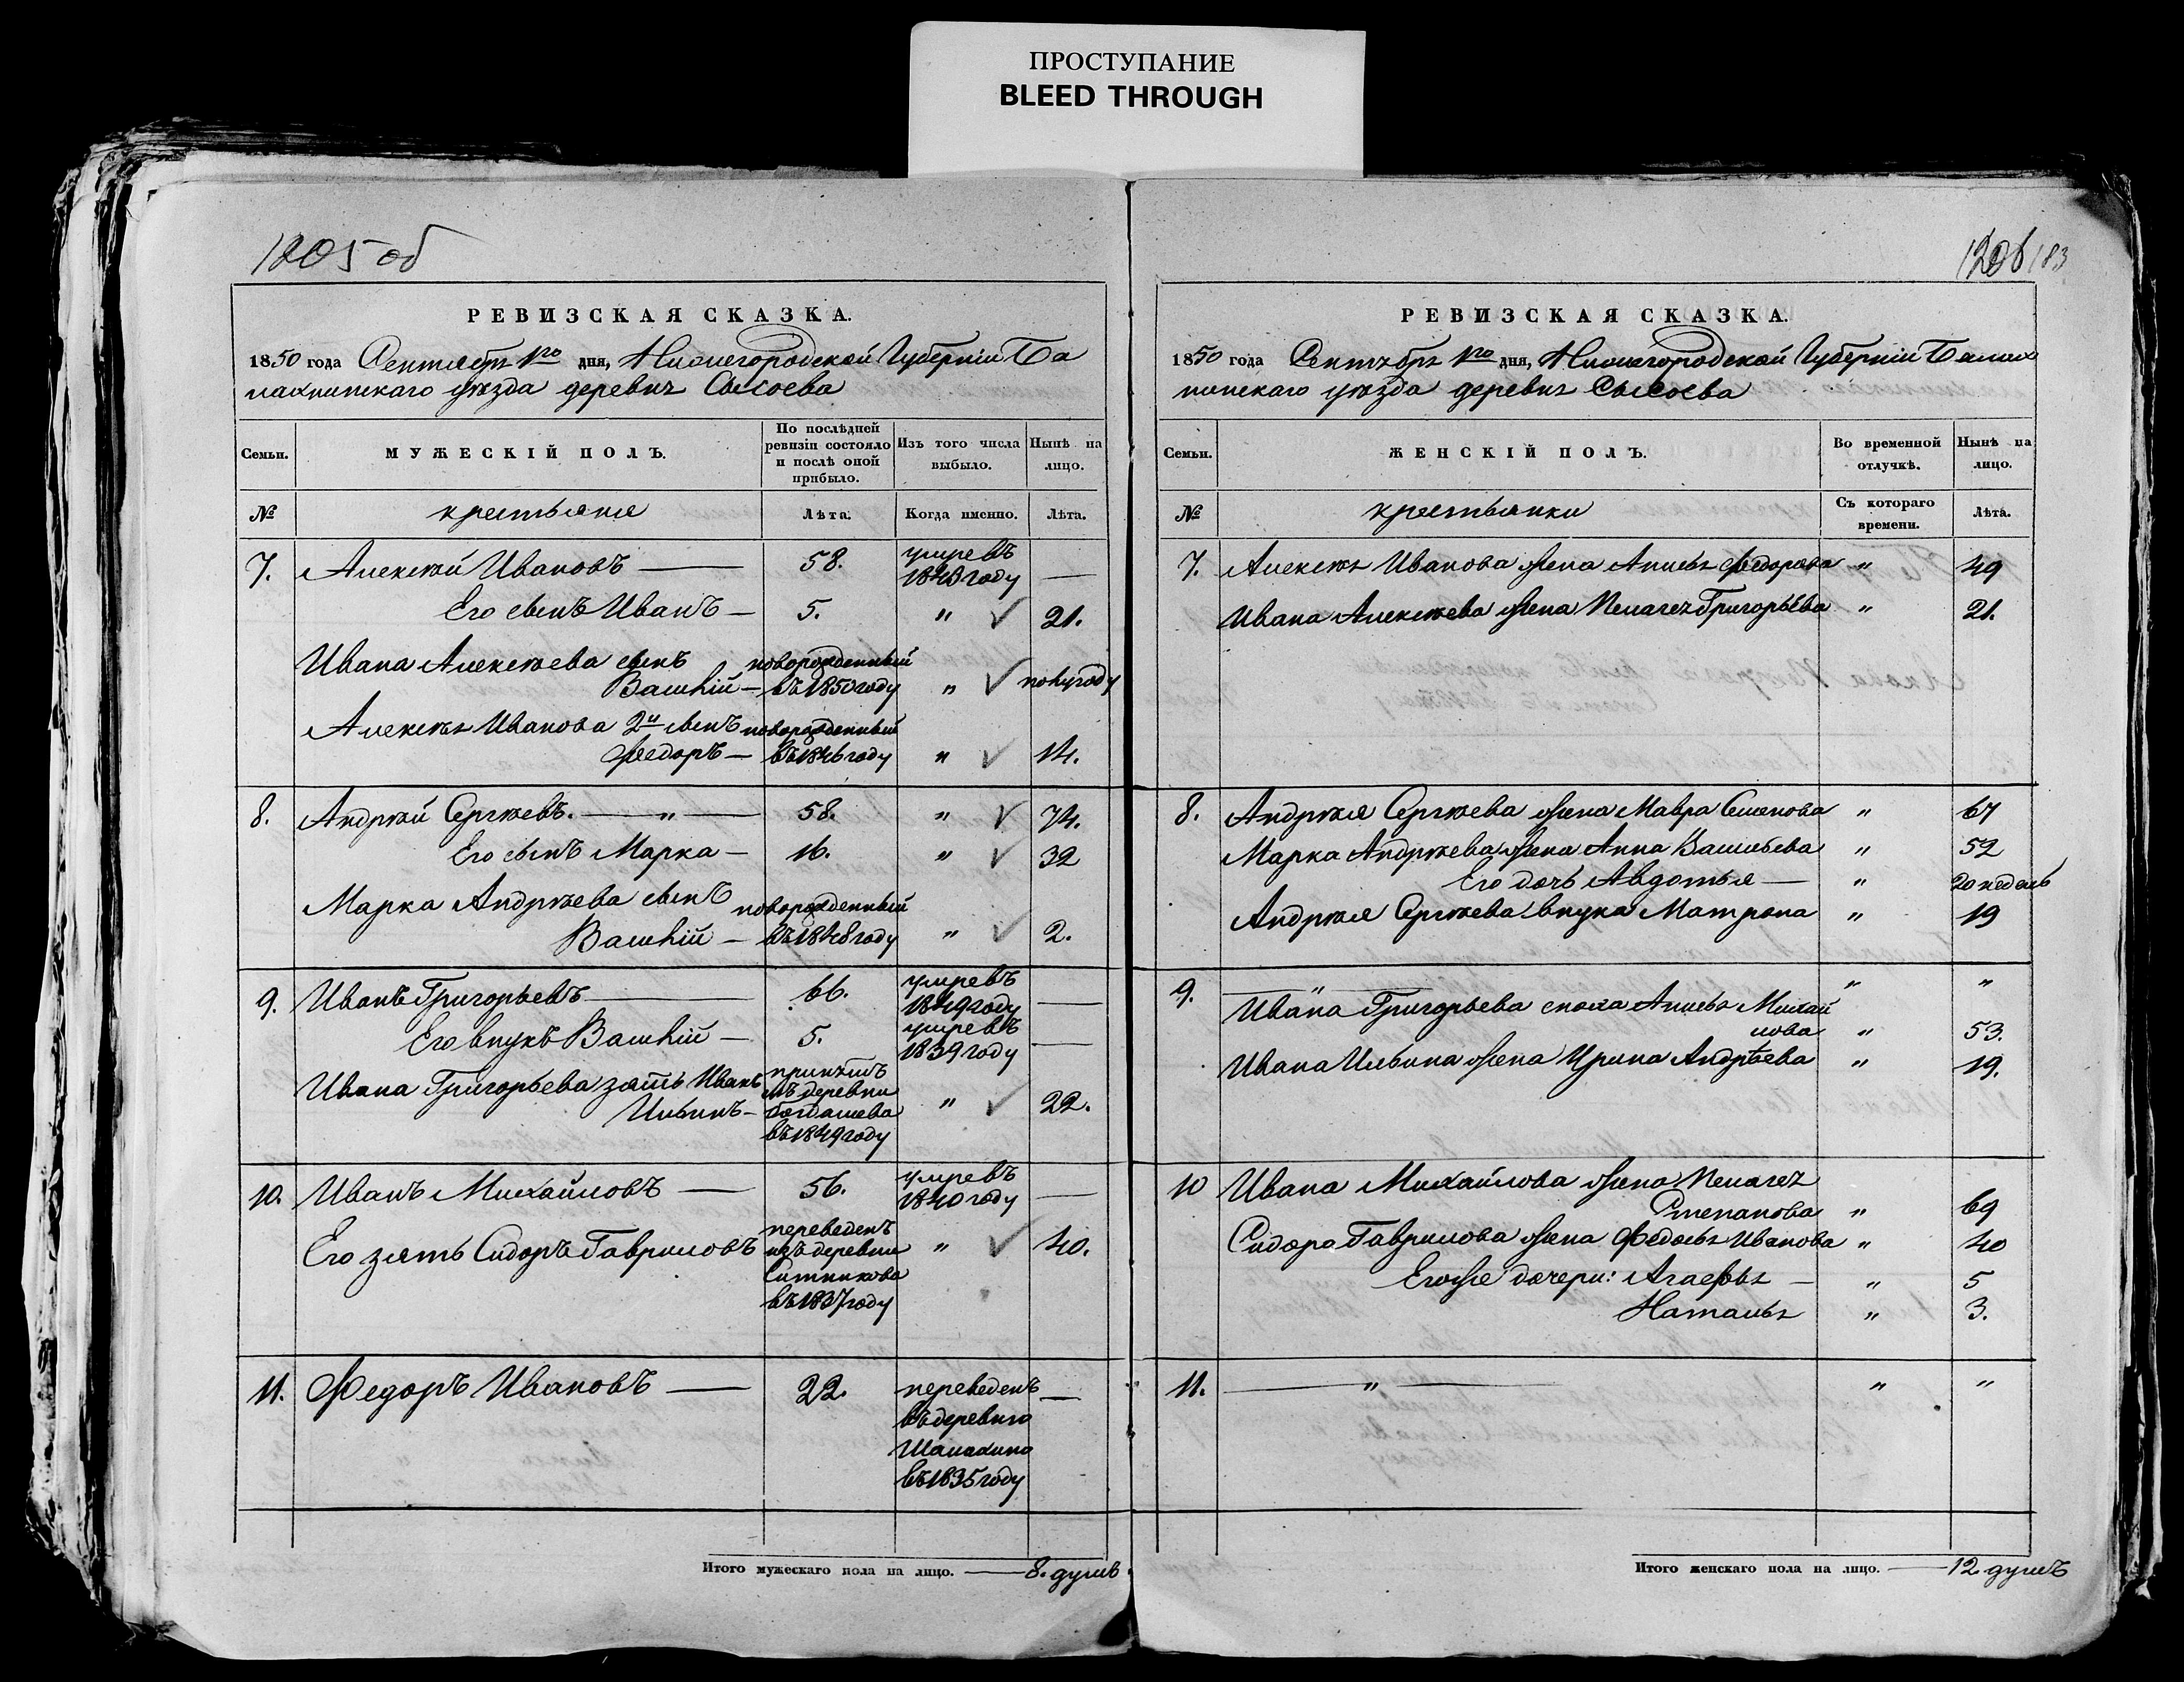 ПРОСТУПАНИЕ
BLEED THROUGH
1205 об
РЕВИЗСКАЯ СКАЗКА.
1850 года Сентября 1го дня, Нижегородской Губернiи Ба
лахнинскаго уѣзда деревни Сысоева
Семьи. МУЖЕСКIЙ ПОЛЪ. По послѣдней ревизiи состояло и послѣ оной прибыло. Изъ того числа выбыло. Нынѣ на лицо.
№ крестьяне Лѣта. Когда именно. Лѣта.
7. Алексѣй Ивановъ — 58. умревъ 1848 году —
Его сынъ Иванъ — 5. " 21.
Ивана Алексѣева сынъ новорожденный
Василiй — въ 1850 году " полугоду
Алексѣя Иванова 2й сынъ новорожденный
Федоръ — въ 1836 году " 14.
8. Андрѣй Сергѣевъ. — " — 58. " 74.
Его сынъ Марка — 16. " 32
Марка Андрѣева сынъ новорожденный
Василiй — въ 1848 году " 2.
9. Иванъ Григорьевъ — 66. умревъ 1849 году —
Его внукъ Василiй — 5. умревъ 1839 году —
Ивана Григорьева зять Иванъ принятъ
Ильинъ — изъ деревни " 22.
въ 1849 году
10. Иванъ Михайловъ — 56. умревъ 1840 году —
Его зять Сидоръ Гавриловъ переведенъ изъ деревни " 40.
Ситникова
въ 1837 году
11. Федоръ Ивановъ — 22. переведенъ —
въ деревню
Шалахина
въ 1835 году
Итого мужескаго пола на лицо. — 8. душъ
1206 183
РЕВИЗСКАЯ СКАЗКА.
1850 года Сентября 1го дня, Нижегородской Губернiи Балах
нинскаго уѣзда деревни Сысоева
Семьи. ЖЕНСКIЙ ПОЛЪ. Во временной отлучкѣ. Нынѣ на лицо.
№ крестьянки Съ котораго времени. Лѣта.
7. Алексѣя Иванова жена Анисья Федорова " 49
Ивана Алексѣева жена Пелагея Григорьева " 21.
8. Андрѣя Сергѣева жена Мавра Семенова " 67
Марка Андрѣева жена Анна Васильева " 52
Его дочь Авдотья — " 20 недель
Андрѣя Сергѣева внука Матрона " 19
9. — " — " "
Ивана Григорьева сноха Анисья Михай
лова " 53.
Ивана Ильина жена Ирина Андрѣева " 19.
10 Ивана Михайлова жена Пелагея
Степанова " 69
Сидора Гаврилова жена Федосья Иванова " 40
Егоже дочери: Агафья — " 5
Наталья " 3.
11. — " — " "
Итого женскаго пола на лицо. — 12 душъ